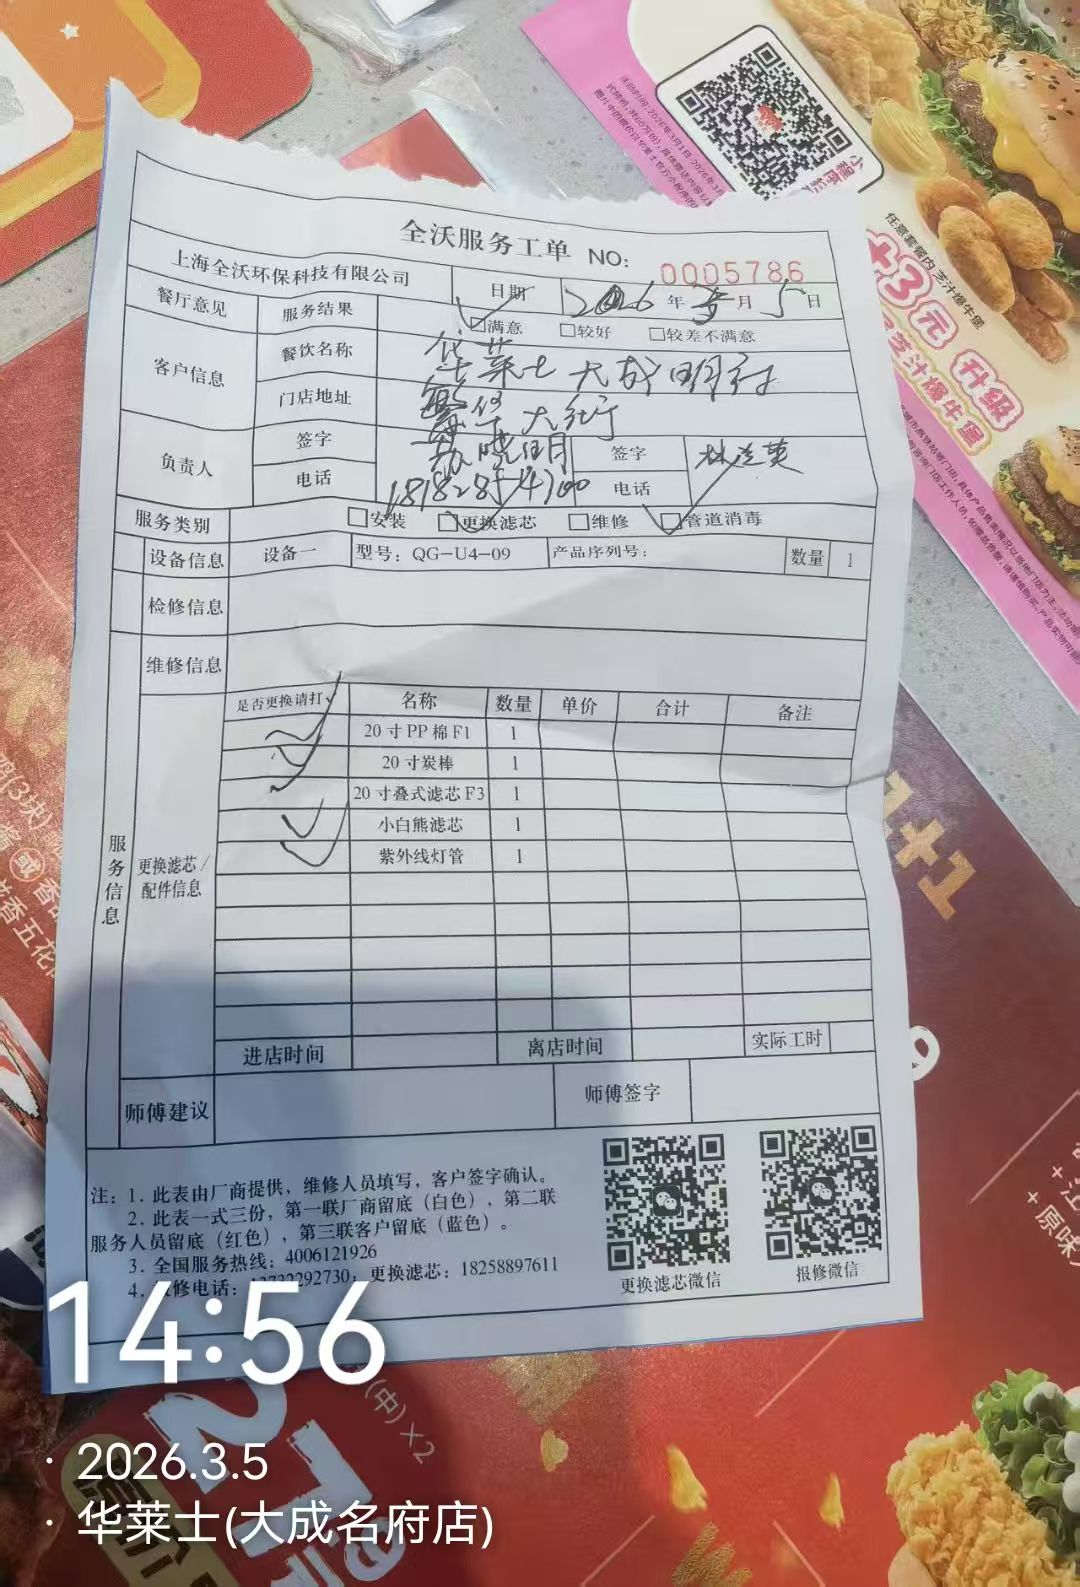 活动时间:2026年3月1日
任意套餐内
+3元 升级
芝汁爆牛堡
全沃服务工单 NO: 0005786
上海全沃环保科技有限公司 日期 2026年3月5日
餐厅意见 服务结果 ☑满意 □较好 □较差不满意
客户信息 餐饮名称 华莱士大成明府
门店地址 繁华大街
负责人 签字 签字
电话 电话
服务类别 □安装 ☑更换滤芯 □维修 ☑管道消毒
设备信息 设备一 型号:QG-U4-09 产品序列号: 数量 1
检修信息
维修信息
服务信息
更换滤芯/配件信息
是否更换请打✓ 名称 数量 单价 合计 备注
✓ 20寸PP棉F1 1
✓ 20寸炭棒 1
✓ 20寸叠式滤芯F3 1
✓ 小白熊滤芯 1
✓ 紫外线灯管 1
进店时间 离店时间 实际工时
师傅建议 师傅签字
注:1.此表由厂商提供,维修人员填写,客户签字确认。
2.此表一式三份,第一联厂商留底(白色),第二联
服务人员留底(红色),第三联客户留底(蓝色)。
3.全国服务热线:4006121926
修电话: 更换滤芯:18258897611
更换滤芯微信
报修微信
(中)×2
14:56
· 2026.3.5
· 华莱士(大成名府店)